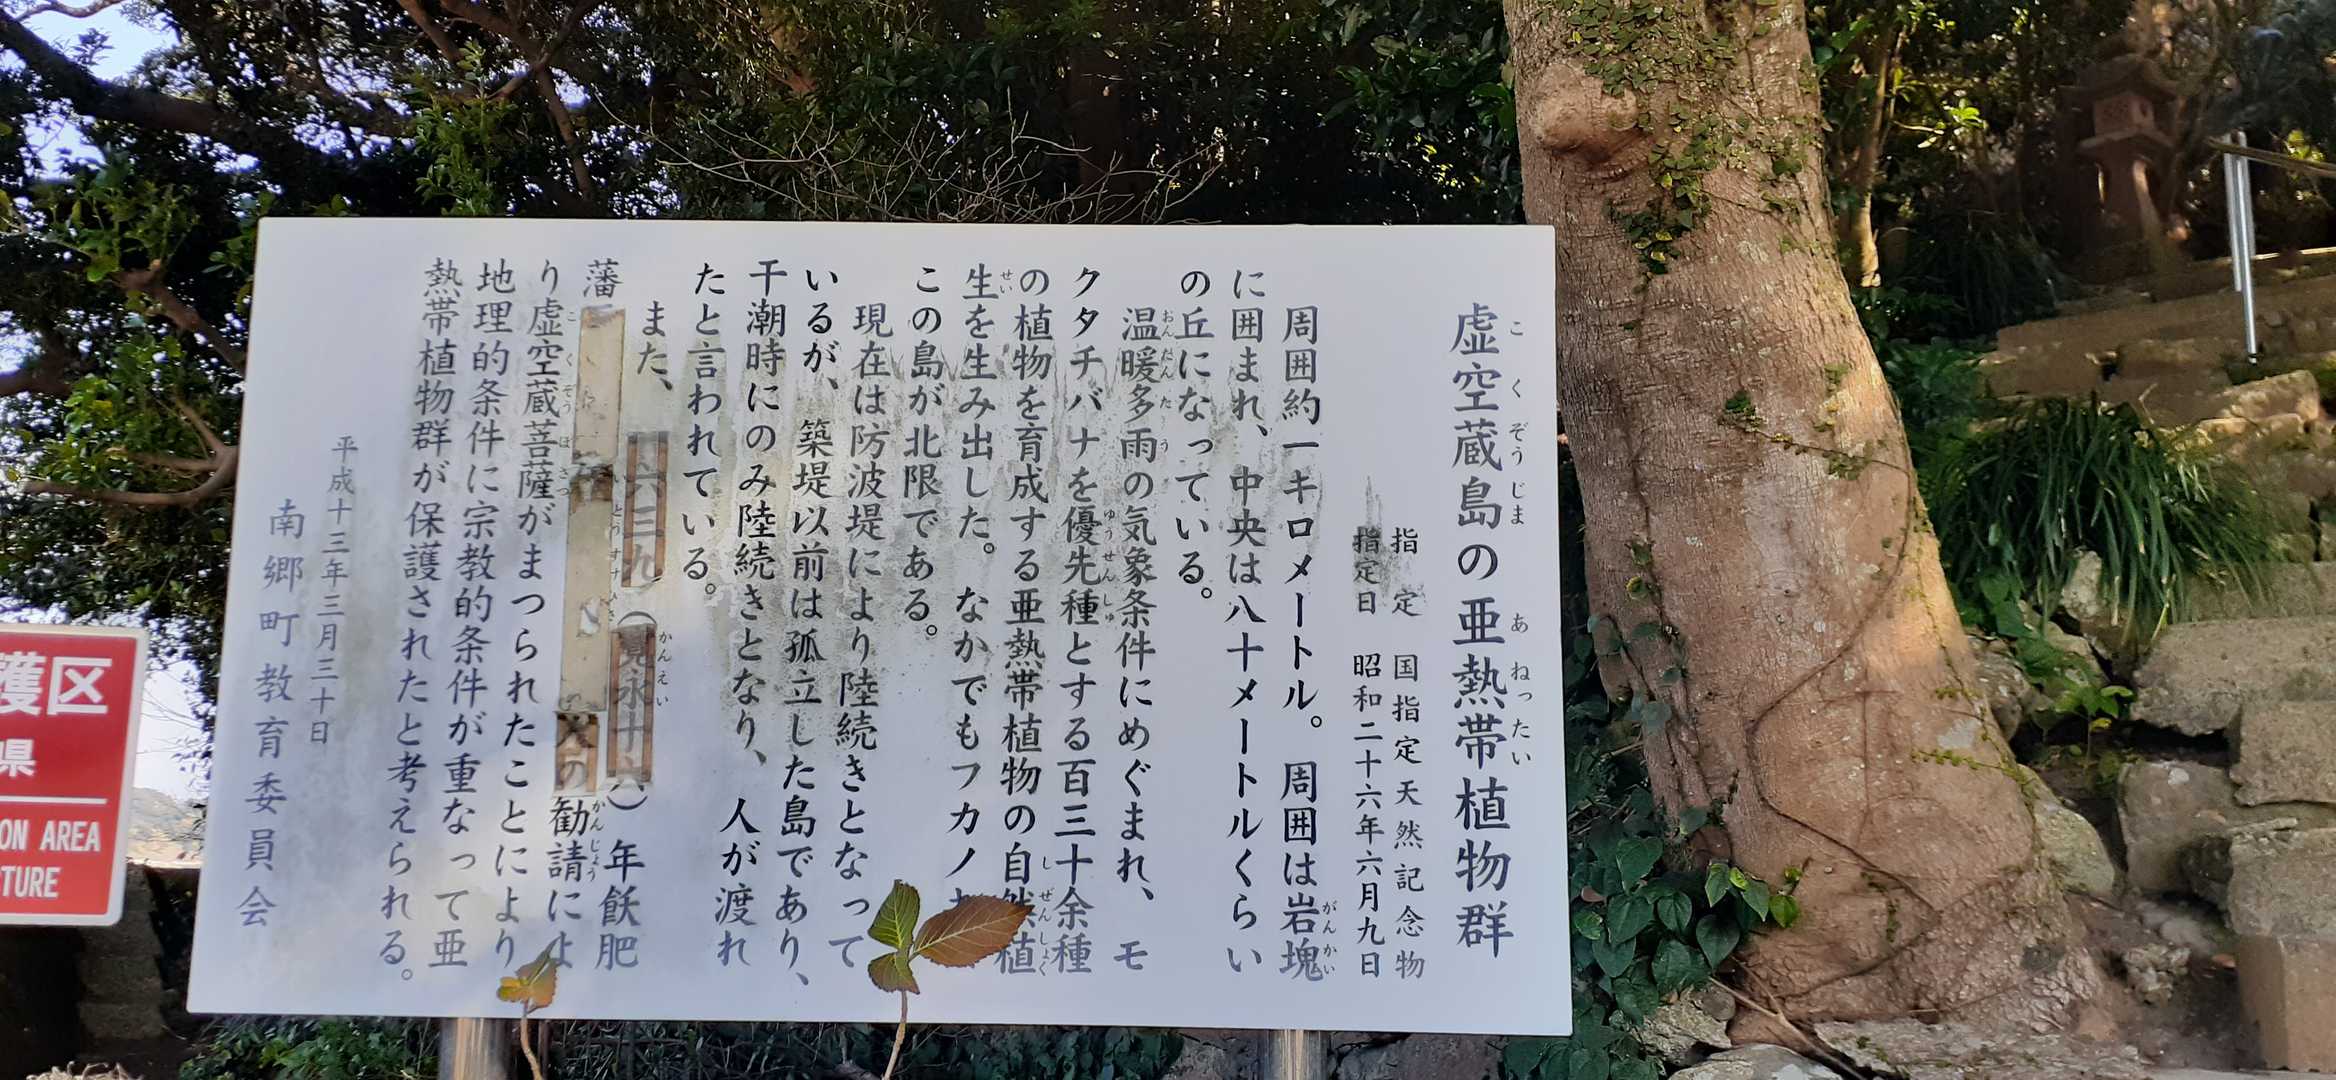 虚空蔵島の亜熱帯植物群
指定 国指定天然記念物
指定日 昭和二十六年六月九日
周囲約一キロメートル。周囲は岩塊
に囲まれ、中央は八十メートルくらい
の丘になっている。
温暖多雨の気象条件にめぐまれ、モ
クタチバナを優先種とする百三十余種
の植物を育成する亜熱帯植物の自然植
生を生み出した。なかでもフカノ
この島が北限である。
現在は防波堤により陸続きとなって
いるが、築堤以前は孤立した島であり、
干潮時にのみ陸続きとなり、人が渡れ
たと言われている。
また、一六三九(寛永十六)年飫肥
藩 の勧請によ
り虚空蔵菩薩がまつられたことにより
地理的条件に宗教的条件が重なって亜
熱帯植物群が保護されたと考えられる。
平成十三年三月三十日
南郷町教育委員会
護区
県
ON AREA
TURE